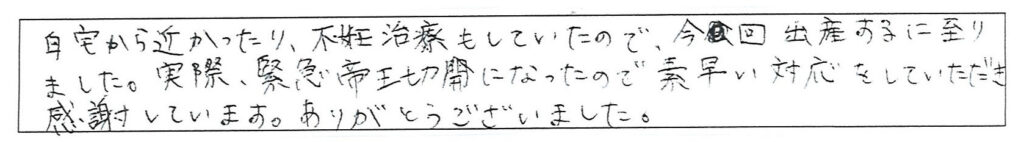 自宅から近かったり、不妊治療もしていたので、今回出産するに至り
ました。実際、緊急帝王切開になったので素早い対応をしていただき
感謝しています。ありがとうございました。